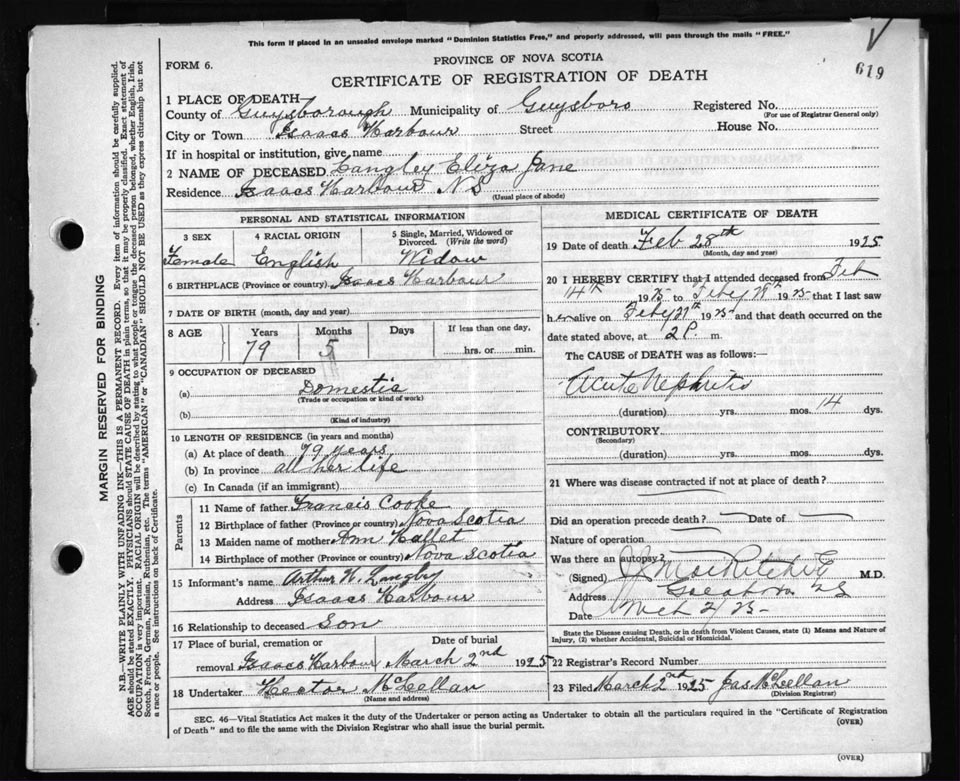 This form if placed in an unsealed envelope marked "Dominion Statistics Free," and properly addressed, will pass through the mails "FREE."
619
FORM 6.
PROVINCE OF NOVA SCOTIA
CERTIFICATE OF REGISTRATION OF DEATH
1 PLACE OF DEATH—
County of Guysborough Municipality of Guysboro Registered No.
(For use of Registrar General only)
City or Town Isaacs Harbour Street House No.
If in hospital or institution, give name
2 NAME OF DECEASED Langley Eliza Jane
Residence Isaacs Harbour N S
(Usual place of abode)
PERSONAL AND STATISTICAL INFORMATION
3 SEX 4 RACIAL ORIGIN 5 Single, Married, Widowed or Divorced. (Write the word)
Female English Widow
6 BIRTHPLACE (Province or country) Isaacs Harbour
7 DATE OF BIRTH (month, day and year)
8 AGE Years Months Days If less than one day,
79 5 hrs. or min.
9 OCCUPATION OF DECEASED
(a) Domestic
(Trade or occupation or kind of work)
(b)
(Kind of industry)
10 LENGTH OF RESIDENCE (in years and months)
(a) At place of death 79 years
(b) In province all her life
(c) In Canada (if an immigrant)
Parents
11 Name of father Francis Cooke
12 Birthplace of father (Province or country) Nova Scotia
13 Maiden name of mother Ann Hallet
14 Birthplace of mother (Province or country) Nova Scotia
15 Informant's name Arthur W. Langley
Address Isaacs Harbour
16 Relationship to deceased Son
17 Place of burial, cremation or removal Date of burial
Isaacs Harbour March 2nd 1925
18 Undertaker Hector McLellan
(Name and address)
MEDICAL CERTIFICATE OF DEATH
19 Date of death Feb 28th 1925
(Month, day and year)
20 I HEREBY CERTIFY that I attended deceased from Feb
14th 1925 to Feby 28th 1925 that I last saw
her alive on Feby 27th 1925 and that death occurred on the
date stated above, at 2 P. m.
The CAUSE OF DEATH was as follows:
Acute Nephritis
(duration) yrs. mos. 14 dys.
CONTRIBUTORY
(Secondary)
(duration) yrs. mos. dys.
21 Where was disease contracted if not at place of death?
Did an operation precede death? Date of
Nature of operation
Was there an autopsy?
(Signed) M.D.
Address N S
Date Mch 2/25
State the Disease causing Death, or in death from Violent Causes, state (1) Means and Nature of Injury, (2) whether Accidental, Suicidal or Homicidal.
22 Registrar's Record Number
23 Filed March 2nd 1925 Jas McLellan
(Division Registrar)
SEC. 46—Vital Statistics Act makes it the duty of the Undertaker or person acting as Undertaker to obtain all the particulars required in the "Certificate of Registration
of Death" and to file the same with the Division Registrar who shall issue the burial permit.
(OVER)
(OVER)
MARGIN RESERVED FOR BINDING
N.B.—WRITE PLAINLY WITH UNFADING INK—THIS IS A PERMANENT RECORD. Every item of information should be carefully supplied.
AGE should be stated EXACTLY. PHYSICIANS should STATE CAUSE OF DEATH in plain terms, so that it may be properly classified. Exact statement of
OCCUPATION is very important. RACIAL ORIGIN will be described by stating to what people or tongue the deceased person belonged, whether English, Irish,
Scotch, French, German, Russian, Ruthenian, etc. The terms "AMERICAN" or "CANADIAN" SHOULD NOT BE USED as they express citizenship but not
a race or people. See instructions on back of Certificate.